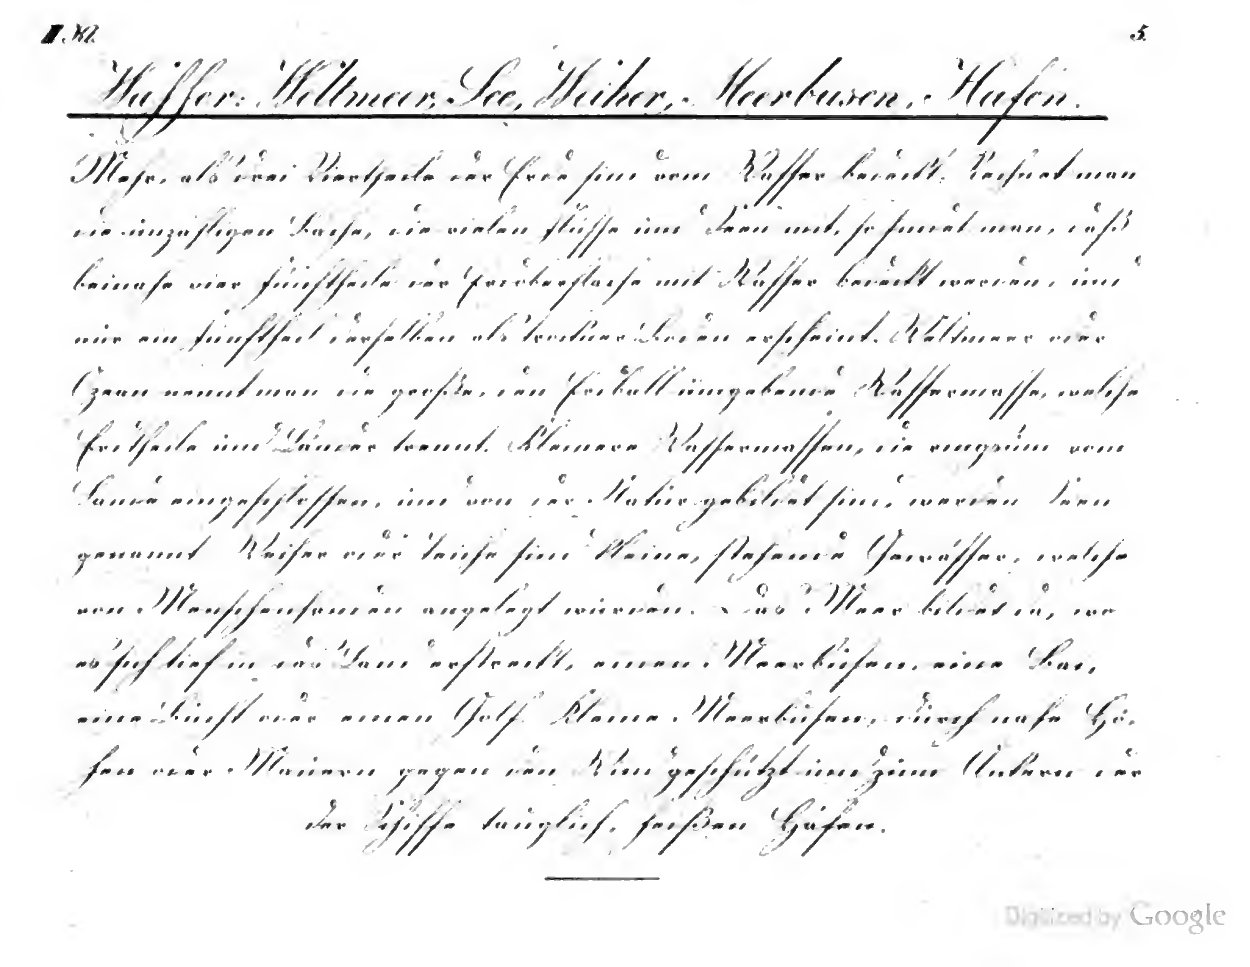 II Kl. 5.
Wasser: Weltmeer, See, Weiher, Meerbusen, Hafen.
Mehr, als drei Viertheile der Erde sind vom Wasser bedeckt. Rechnet man
die unzähligen Bäche, die vielen Flüsse und Seen mit, so findet man, daß
beinahe vier Fünftheile der Erdoberfläche mit Wasser bedeckt werden, und
nur ein Fünftheil derselben als trockner Boden erscheint. Weltmeer oder
Ozean nennt man die große, den Erdball umgebende Wassermasse, welche
Erdtheile und Länder trennt. Kleinere Wassermassen, die ringsum vom
Lande eingeschlossen, und von der Natur gebildet sind, werden Seen
genannt Weiher oder Teiche sind kleine, stehende Gewässer, welche
von Menschenhänden angelegt wurden. Das Meer bildet da, wo
es sich tief in das Land erstreckt, einen Meerbusen, eine Bai,
eine Bucht oder einen Golf. Kleine Meerbusen, durch nahe Hö-
hen oder Mauern gegen den Wind geschützt und zum Ankern der
der Schiffe tauglich, heißen Häfen.
Digitized by Google